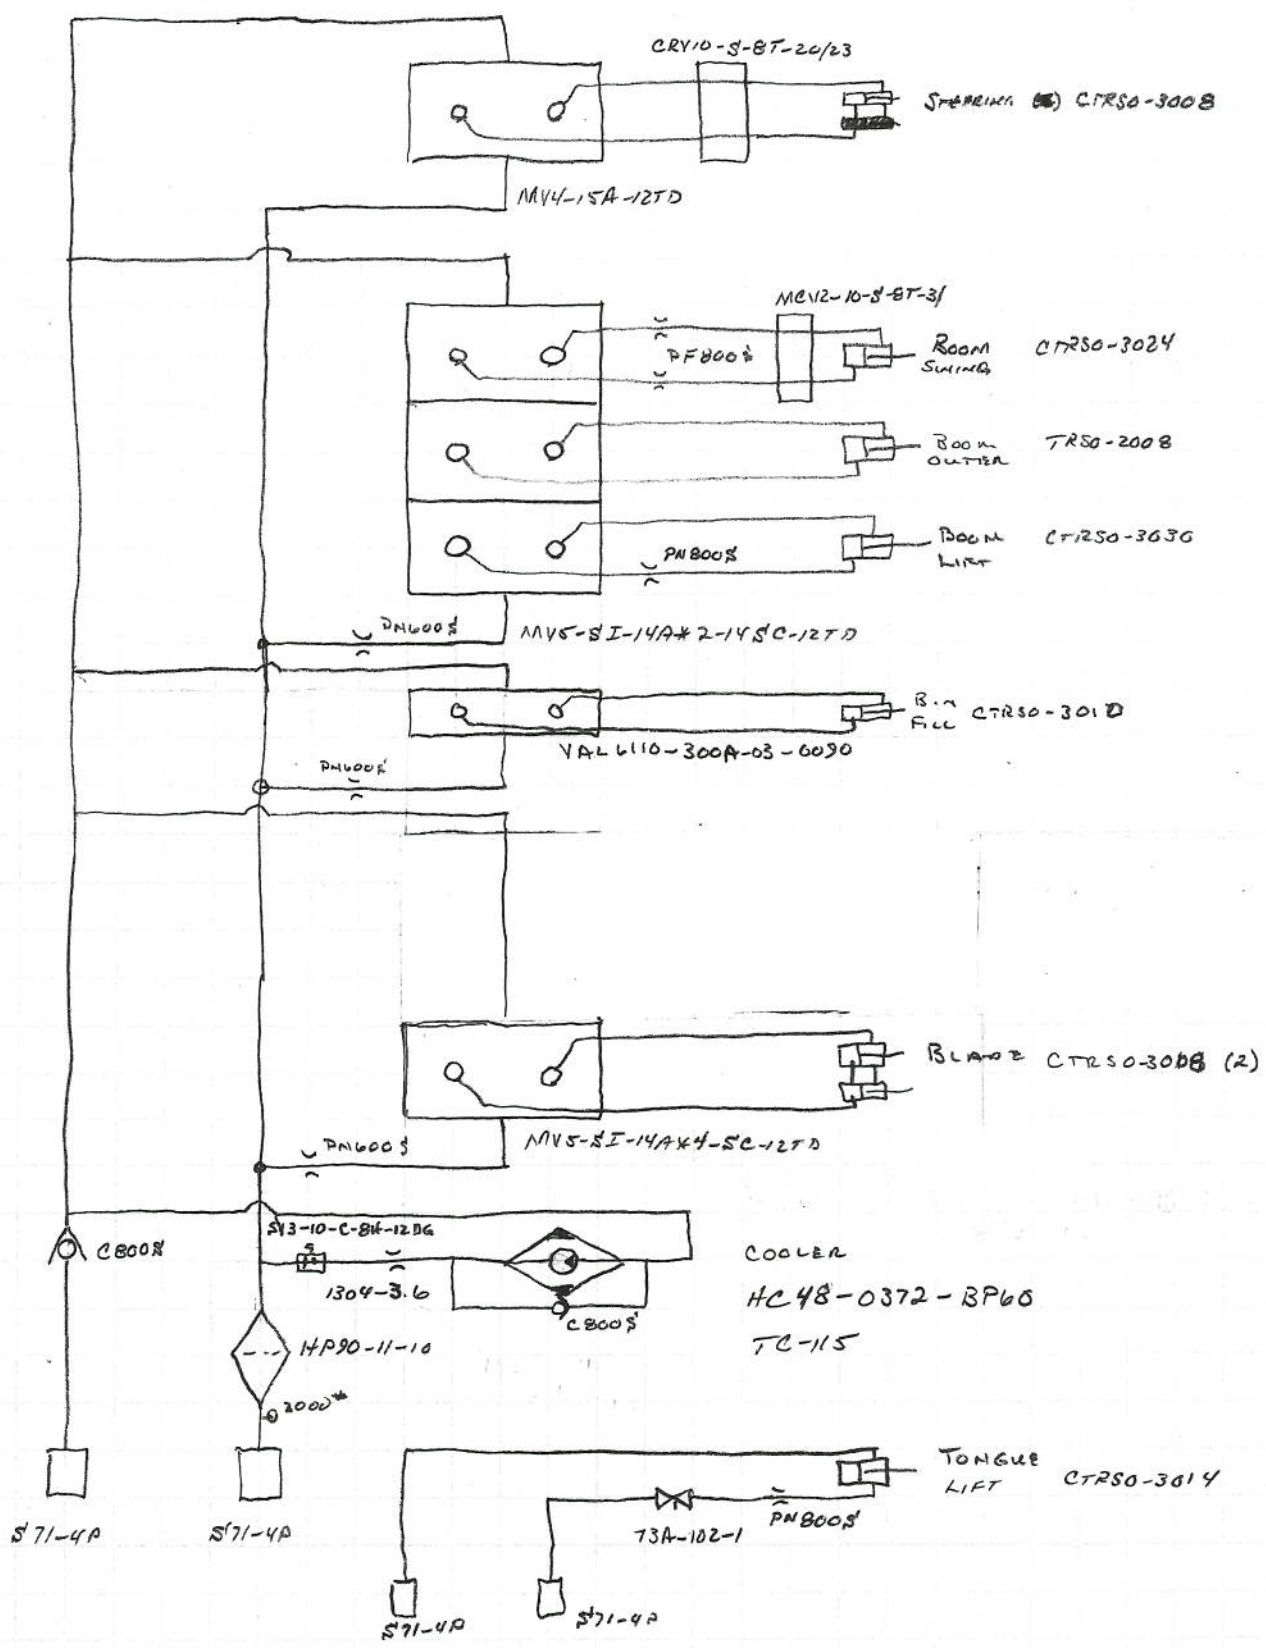 CRV10-S-8T-20/23
STEERING CTRSO-3008
MV4-15A-12TD
MCV2-10-S-8T-31
PF800S
BOOM SWING CTRSO-3024
BOOM OUTER TRSO-2008
BOOM LIFT CTRSO-3030
PN800S
PN600S
MV5-SI-14A*2-14SC-12TD
BIN FILL CTRSO-3010
VAL6110-300A-03-0090
PN600S
BLADE CTRSO-3008 (2)
PN600S
MV5-SI-14A*4-SC-12TD
SV3-10-C-8H-12DG
C800S
1304-3.6
C800S
COOLER
HC48-0372-BP60
TC-115
HP90-11-10
2000#
TONGUE LIFT CTRSO-3014
S71-4P
S71-4P
73A-102-1
PN800S
S71-4P
S71-4P